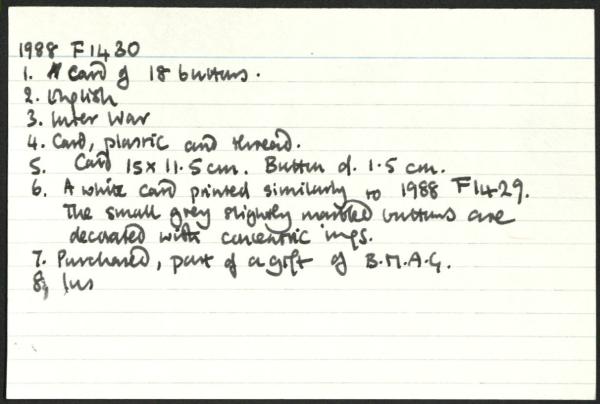 1988 F1430
1. A Card of 18 buttons.
2. English
3. Inter War
4. Card, plastic and thread.
5. Card 15 x 11.5 cm. Button d. 1.5 cm.
6. A white card printed similarly to 1988 F1429.
The small grey slightly marbled buttons are
decorated with concentric rings.
7. Purchased, part of a gift of B.M.A.G.
8,